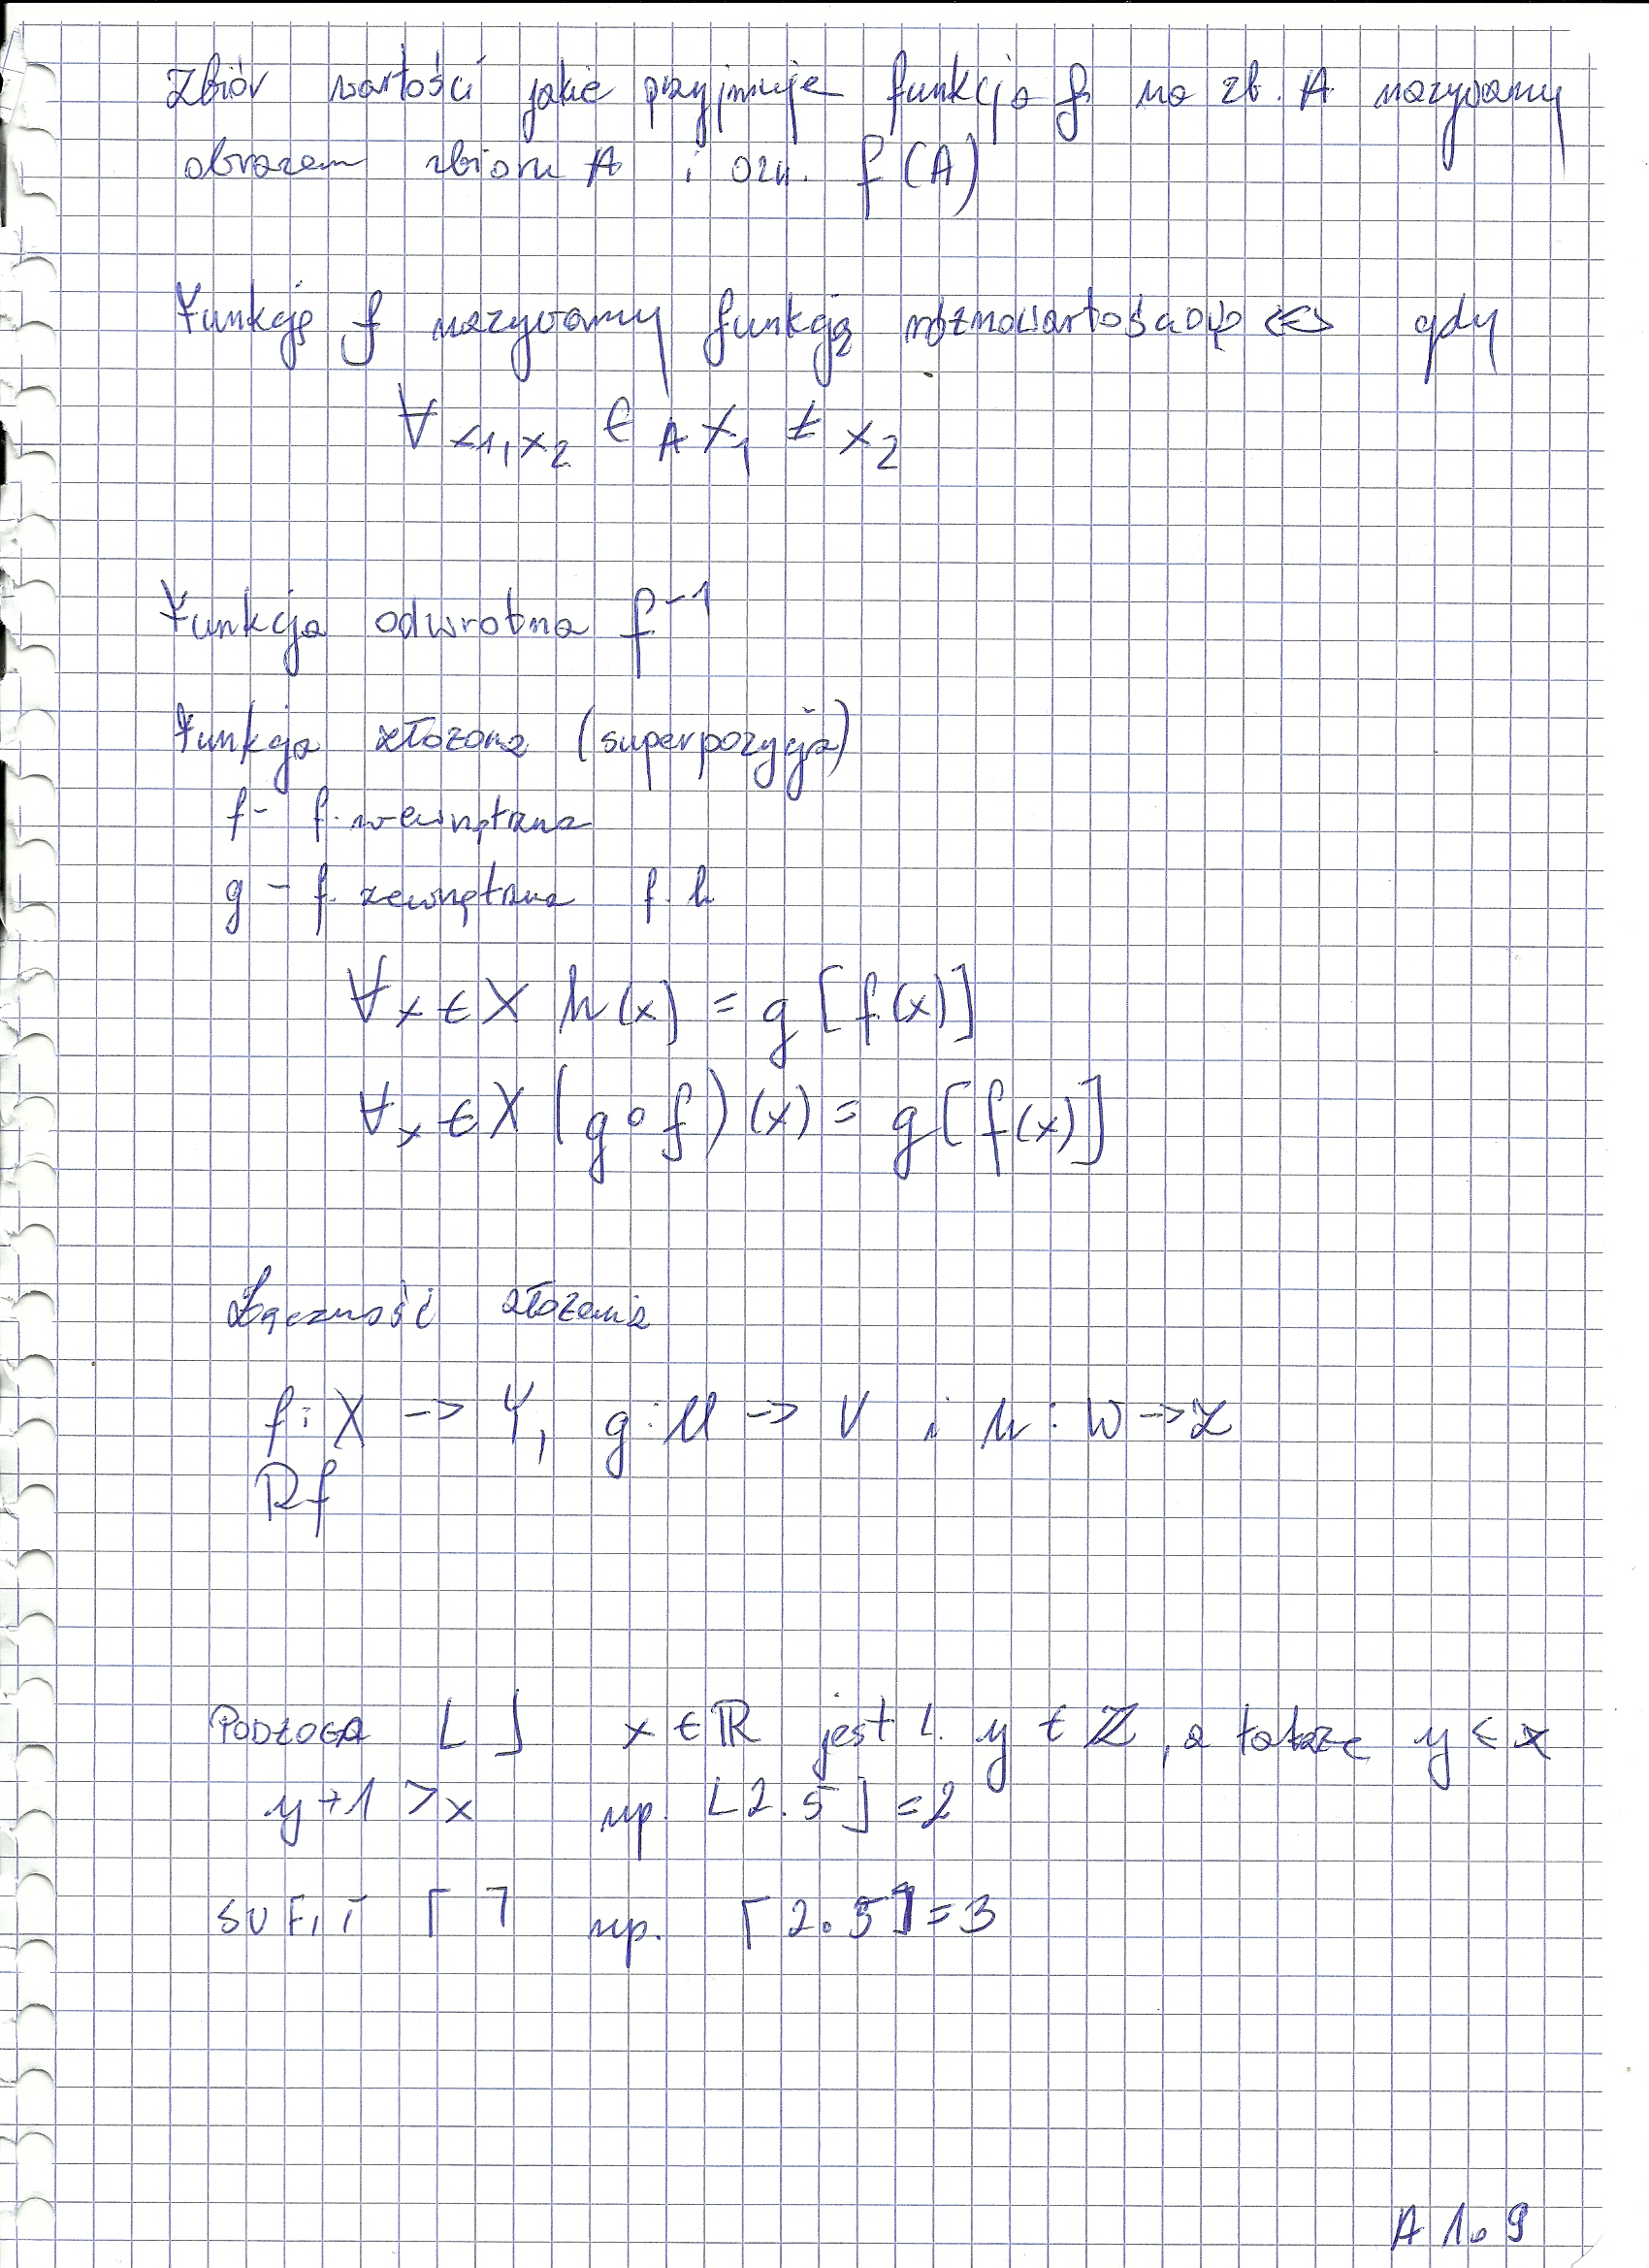 Zbiór wartości jakie przyjmuje funkcja f na zb. A nazywamy
obrazem zbioru A i ozn. f(A)
Funkcję f nazywamy funkcją różnowartościową <=> gdy
∀ x1, x2 ∈ A x1 ≠ x2
Funkcja odwrotna f⁻¹
Funkcja złożona (superpozycja)
f - f. wewnętrzna
g - f. zewnętrzna f. h
∀x ∈ X h(x) = g[f(x)]
∀x ∈ X (g∘f)(x) = g[f(x)]
Łączność złożenia
f: X -> Y, g: U -> V i h: W -> Z
Rf
PODŁOGA ⌊ ⌋ x ∈ ℝ jest l. y ∈ ℤ, a także y ≤ x
y+1 > x np. ⌊2.5⌋ = 2
SUFIT ⌈ ⌉ np. ⌈2.5⌉ = 3
A 1.9